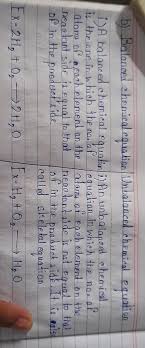 b) Balanced chemical equation Unbalanced chemical equation
1) A balanced chemical equation 1) An unbalanced chemical
is the one in which the no. of equation in which the no. of
atoms of each element on the atoms of each element on the
reactant side is equal to that reactant side is not equal to that
of in the product side. of in the product side. It is also
called skeletal equation.
Ex - 2H₂ + O₂ → 2H₂O Ex - H₂ + O₂ → H₂O